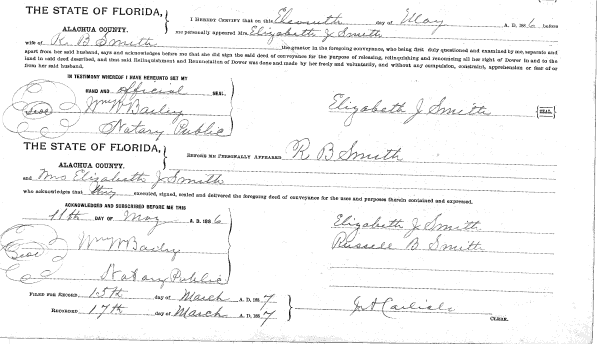 THE STATE OF FLORIDA,
ALACHUA COUNTY.
I HEREBY CERTIFY that on this Eleventh day of May A. D. 1886 before
me personally appeared Mrs. Elizabeth J Smith
wife of R. B Smith the grantor in the foregoing conveyance, who being first duly questioned and examined by me, separate and
apart from her said husband, says and acknowledges before me that she did sign the said deed of conveyance for the purpose of releasing, relinquishing and renouncing all her right of Dower in and to the
land in said deed described, and that said Relinquishment and Renunciation of Dower was done and made by her freely and voluntarily, and without any compulsion, constraint, apprehension or fear of or
from her said husband.
IN TESTIMONY WHEREOF I HAVE HEREUNTO SET MY
HAND AND official SEAL:
Seal
Wm W Bailey
Notary Public
Elizabeth J Smith SEAL
THE STATE OF FLORIDA,
ALACHUA COUNTY.
BEFORE ME PERSONALLY APPEARED R B Smith
and Mrs Elizabeth J Smith
who acknowledges that they executed, signed, sealed and delivered the foregoing deed of conveyance for the uses and purposes therein contained and expressed.
ACKNOWLEDGED AND SUBSCRIBED BEFORE ME THIS
11th DAY OF May A. D. 1886
Seal
Wm W Bailey
Notary Public
Elizabeth J Smith
Russell B Smith
FILED FOR RECORD 15th day of March A. D. 1887
RECORDED 17th day of March A. D. 1887
J A Carlisle
CLERK.